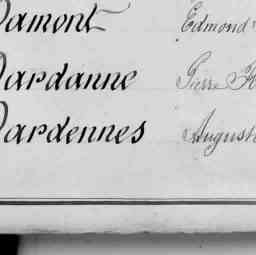 Damont Edmond
Dardanne Pierre
Dardennes Auguste